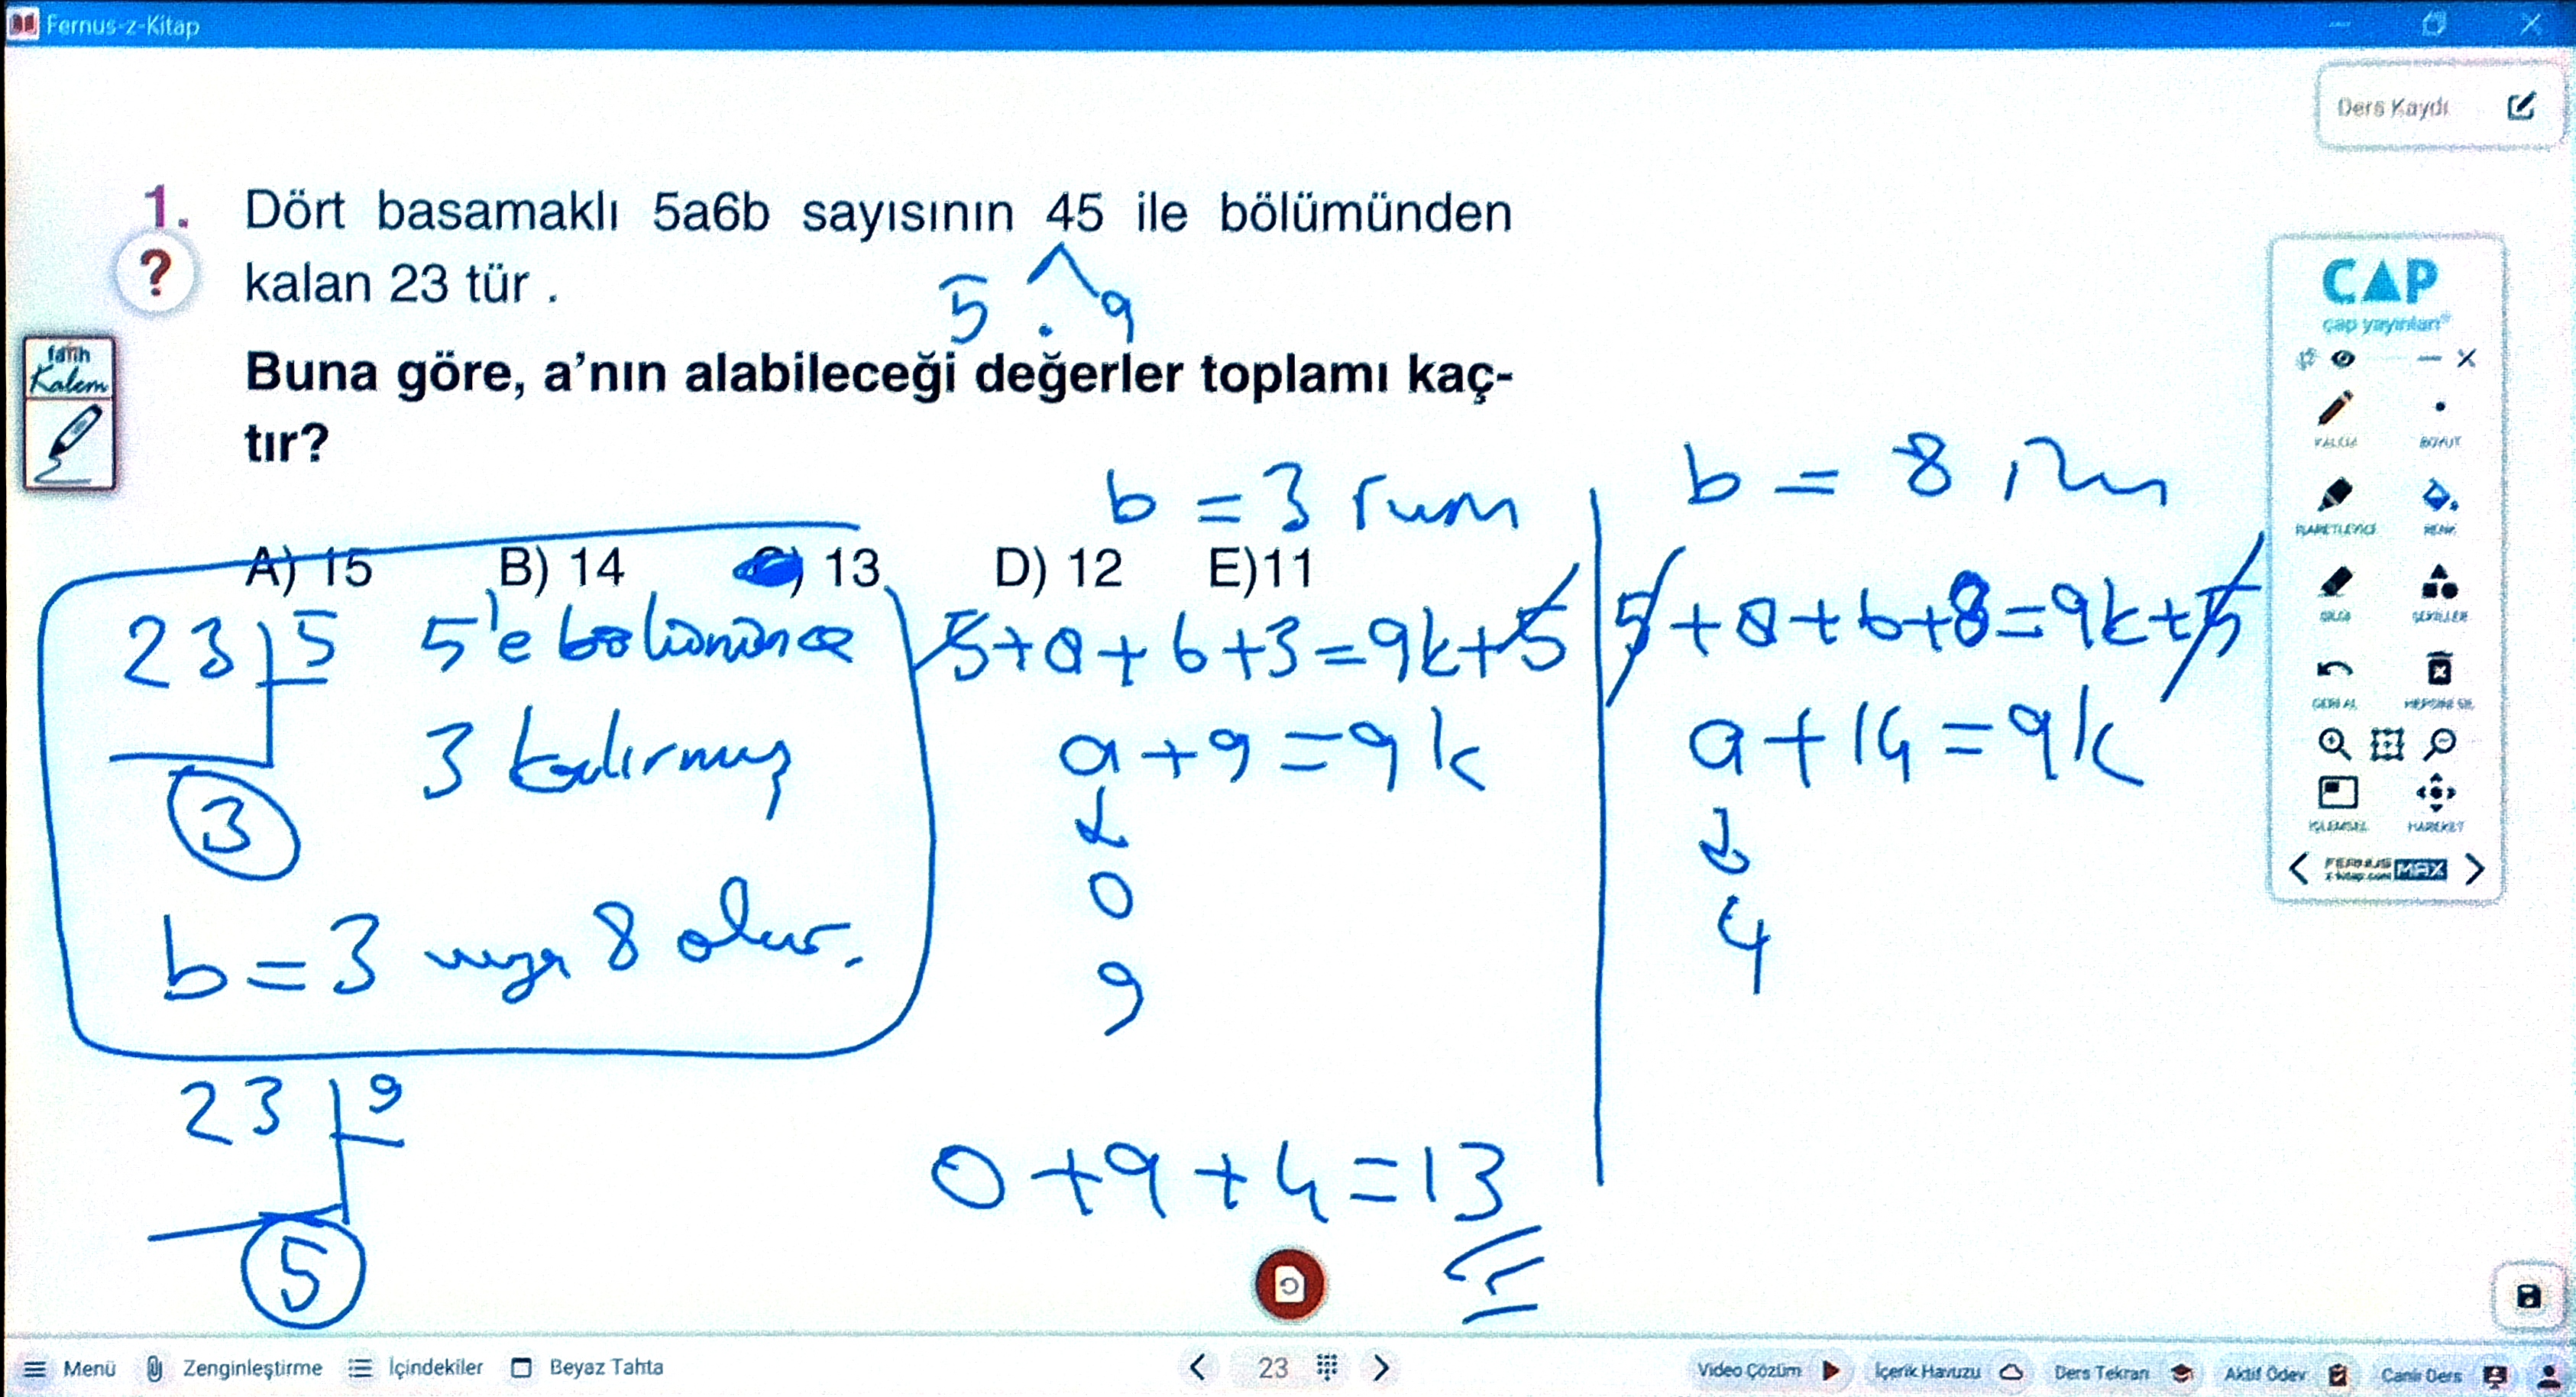 Fernus-z-Kitap
Ders Kaydı
1. Dört basamaklı 5a6b sayısının 45 ile bölümünden
? kalan 23 tür .
5 . 9
fatih
Kalem
Buna göre, a'nın alabileceği değerler toplamı kaç-
tır?
A) 15 B) 14 C) 13 D) 12 E)11
23 5 5'e bölününce
3 kalırmış
3
b = 3 veya 8 olur.
23 9
5
b = 3 için
5+a+6+3=9k+5
a+9=9k
0
9
b = 8 için
5+a+6+8=9k+5
a+14=9k
4
0+9+4=13
ÇAP
çap yayınları
KALEM BOYUT
İŞARETLEYİCİ RENK
SİLGİ ŞEKİLLER
GERİ AL HEPSİNİ SİL
İŞLEMSEL HAREKET
FERNUS
z-kitap.com MAX
Menü Zenginleştirme İçindekiler Beyaz Tahta 23 Video Çözüm İçerik Havuzu Ders Tekrarı Aktif Ödev Canlı Ders